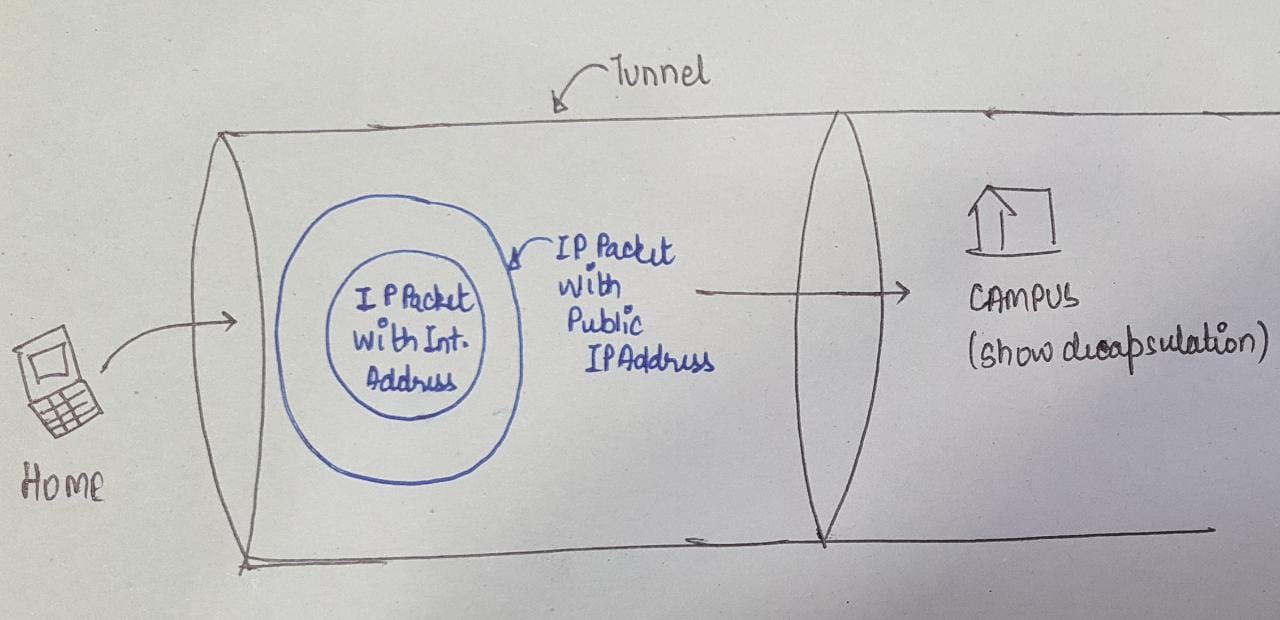 Tunnel
IP Packet
with
Public
IP Address
IP Packet
with Int.
Address
CAMPUS
(show decapsulation)
HOME